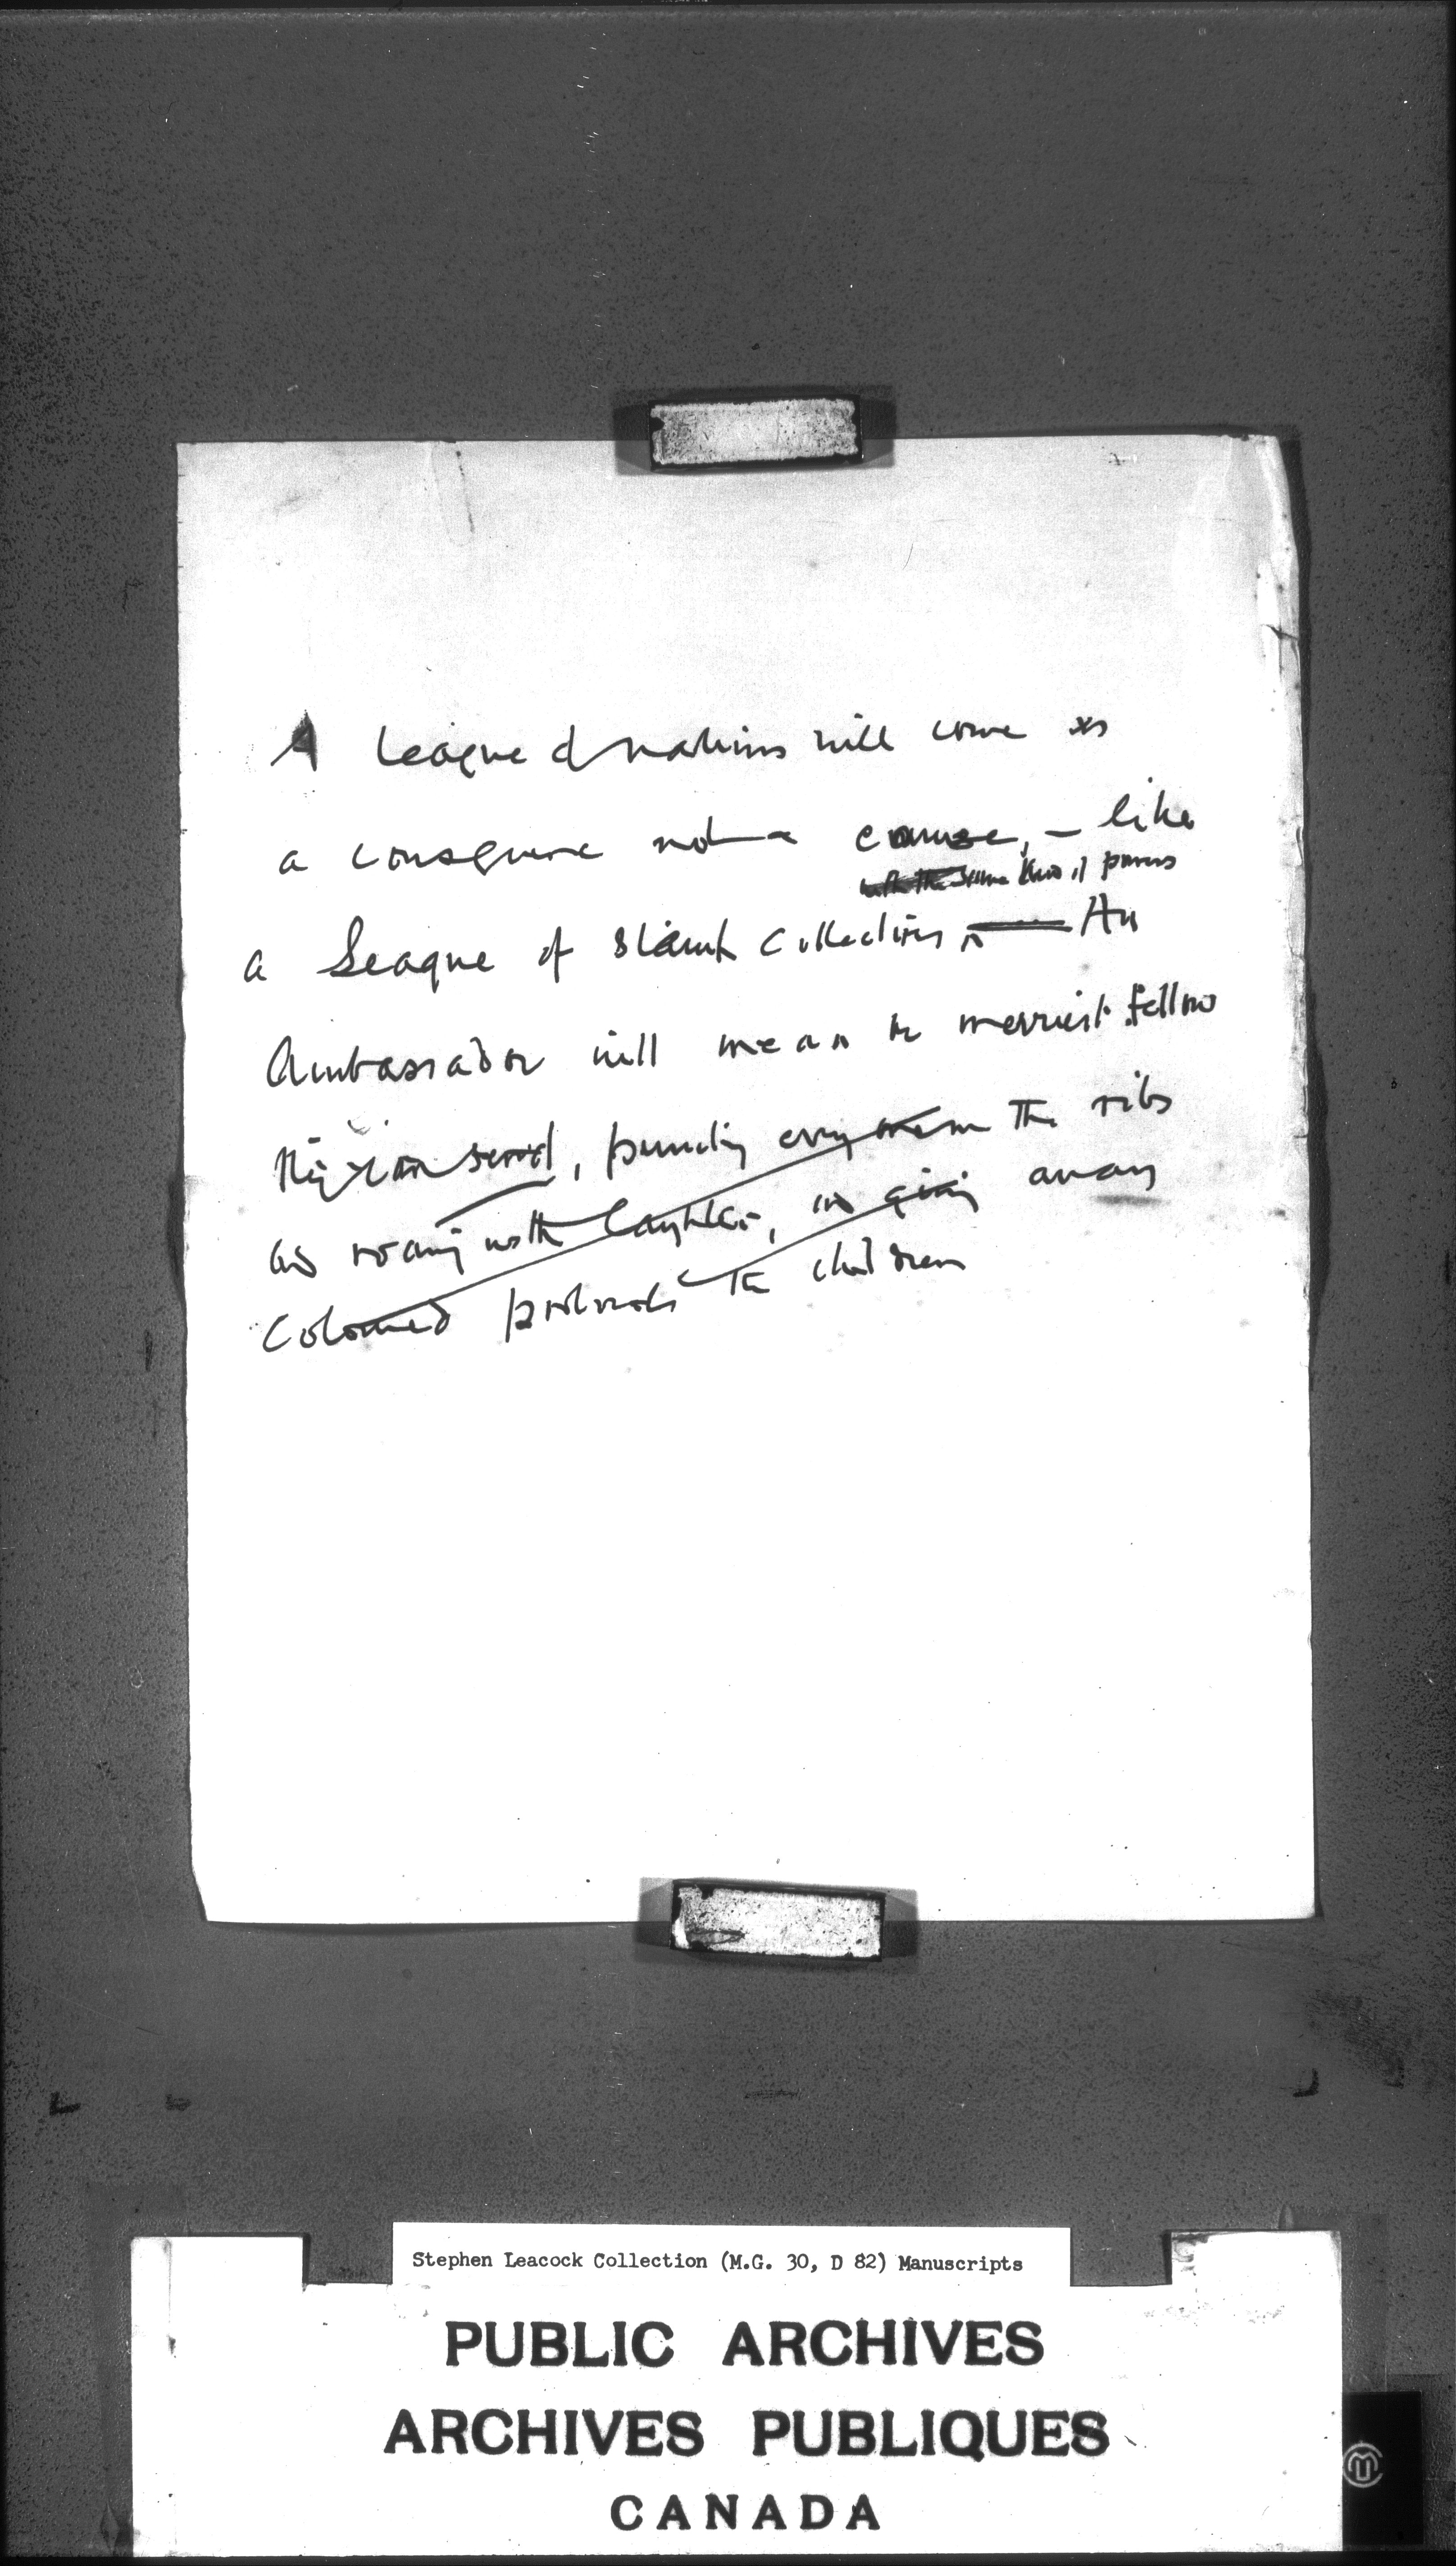 A League of nations will come as
a consequence not a cause, - like
with the same kind of powers
a League of Stamp Collectors An
Ambassador will mean the merriest fellow
they can send, punching everyone in the ribs
and roaring with laughter, and giving away
Coloured postcards to the children
Stephen Leacock Collection (M.G. 30, D 82) Manuscripts
PUBLIC ARCHIVES
ARCHIVES PUBLIQUES
CANADA